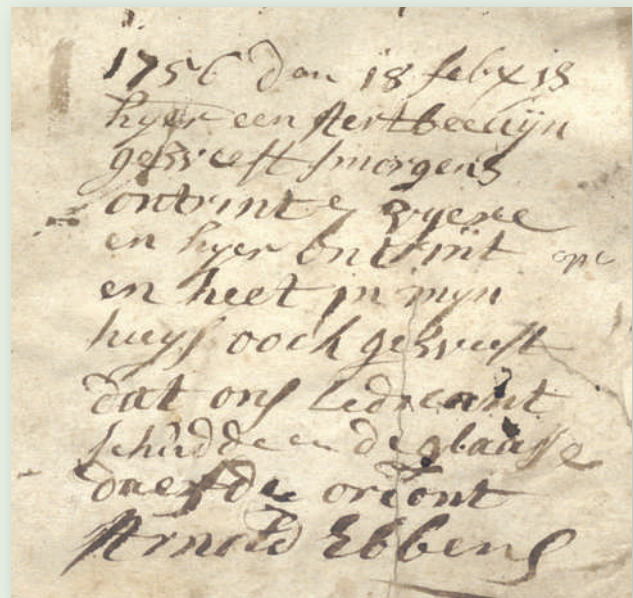 1756 den 18 feb x is
hyer een aertbeevijn
geweest smorgens
ontrint 8 vyere
en hyer ontrint
en heet in mijn
huys oock geweest
dat ons
schudde en de glaasse
daefde
Arnold Ebbens